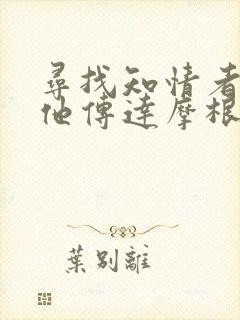 尋找知情者
他傳達摩根
葉別離